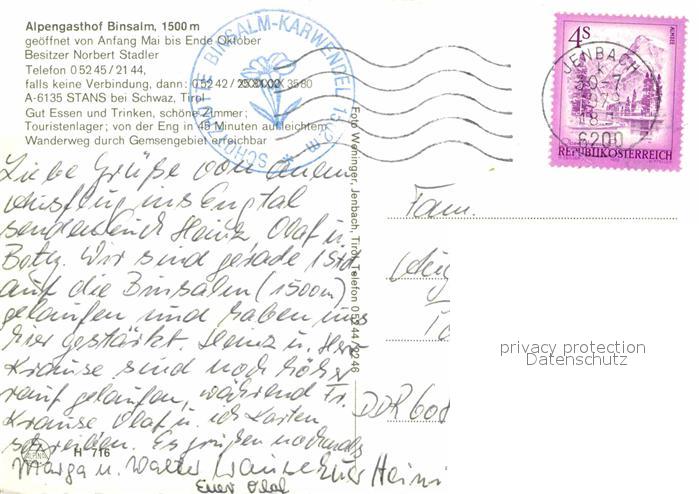 Alpengasthof Binsalm, 1500 m
geöffnet von Anfang Mai bis Ende Oktober
Besitzer Norbert Stadler
Telefon 0 52 45 / 21 44,
falls keine Verbindung, dann: 0 52 42 /
A-6135 STANS bei Schwaz, Tirol
Gut Essen und Trinken, schöne Zimmer;
Touristenlager; von der Eng in 45 Minuten auf leichtem
Wanderweg durch Gemsengebiet erreichbar
BINSALM-KARWENDEL 1502m
4S
REPUBLIK ÖSTERREICH
JENBACH
6200
Foto Weninger, Jenbach, Tirol, Telefon 0 52 44 / 2246
Liebe Grüße von einem
Ausflug ins Engtal
senden Euch Heinz, Olaf u.
Wir sind gerade 1 Std
auf die Binsalm (1500m)
gelaufen und haben uns
hier gestärkt. Heinz u. Herr
Krause sind noch höher
rauf gelaufen, während Fr.
Krause Olaf u. ich Karten
schreiben. Es grüßen nochmals
Marga u. Walter Krause Euer Heini
Euer Olaf
Fam.
DDR 60
H 716
privacy protection
Datenschutz